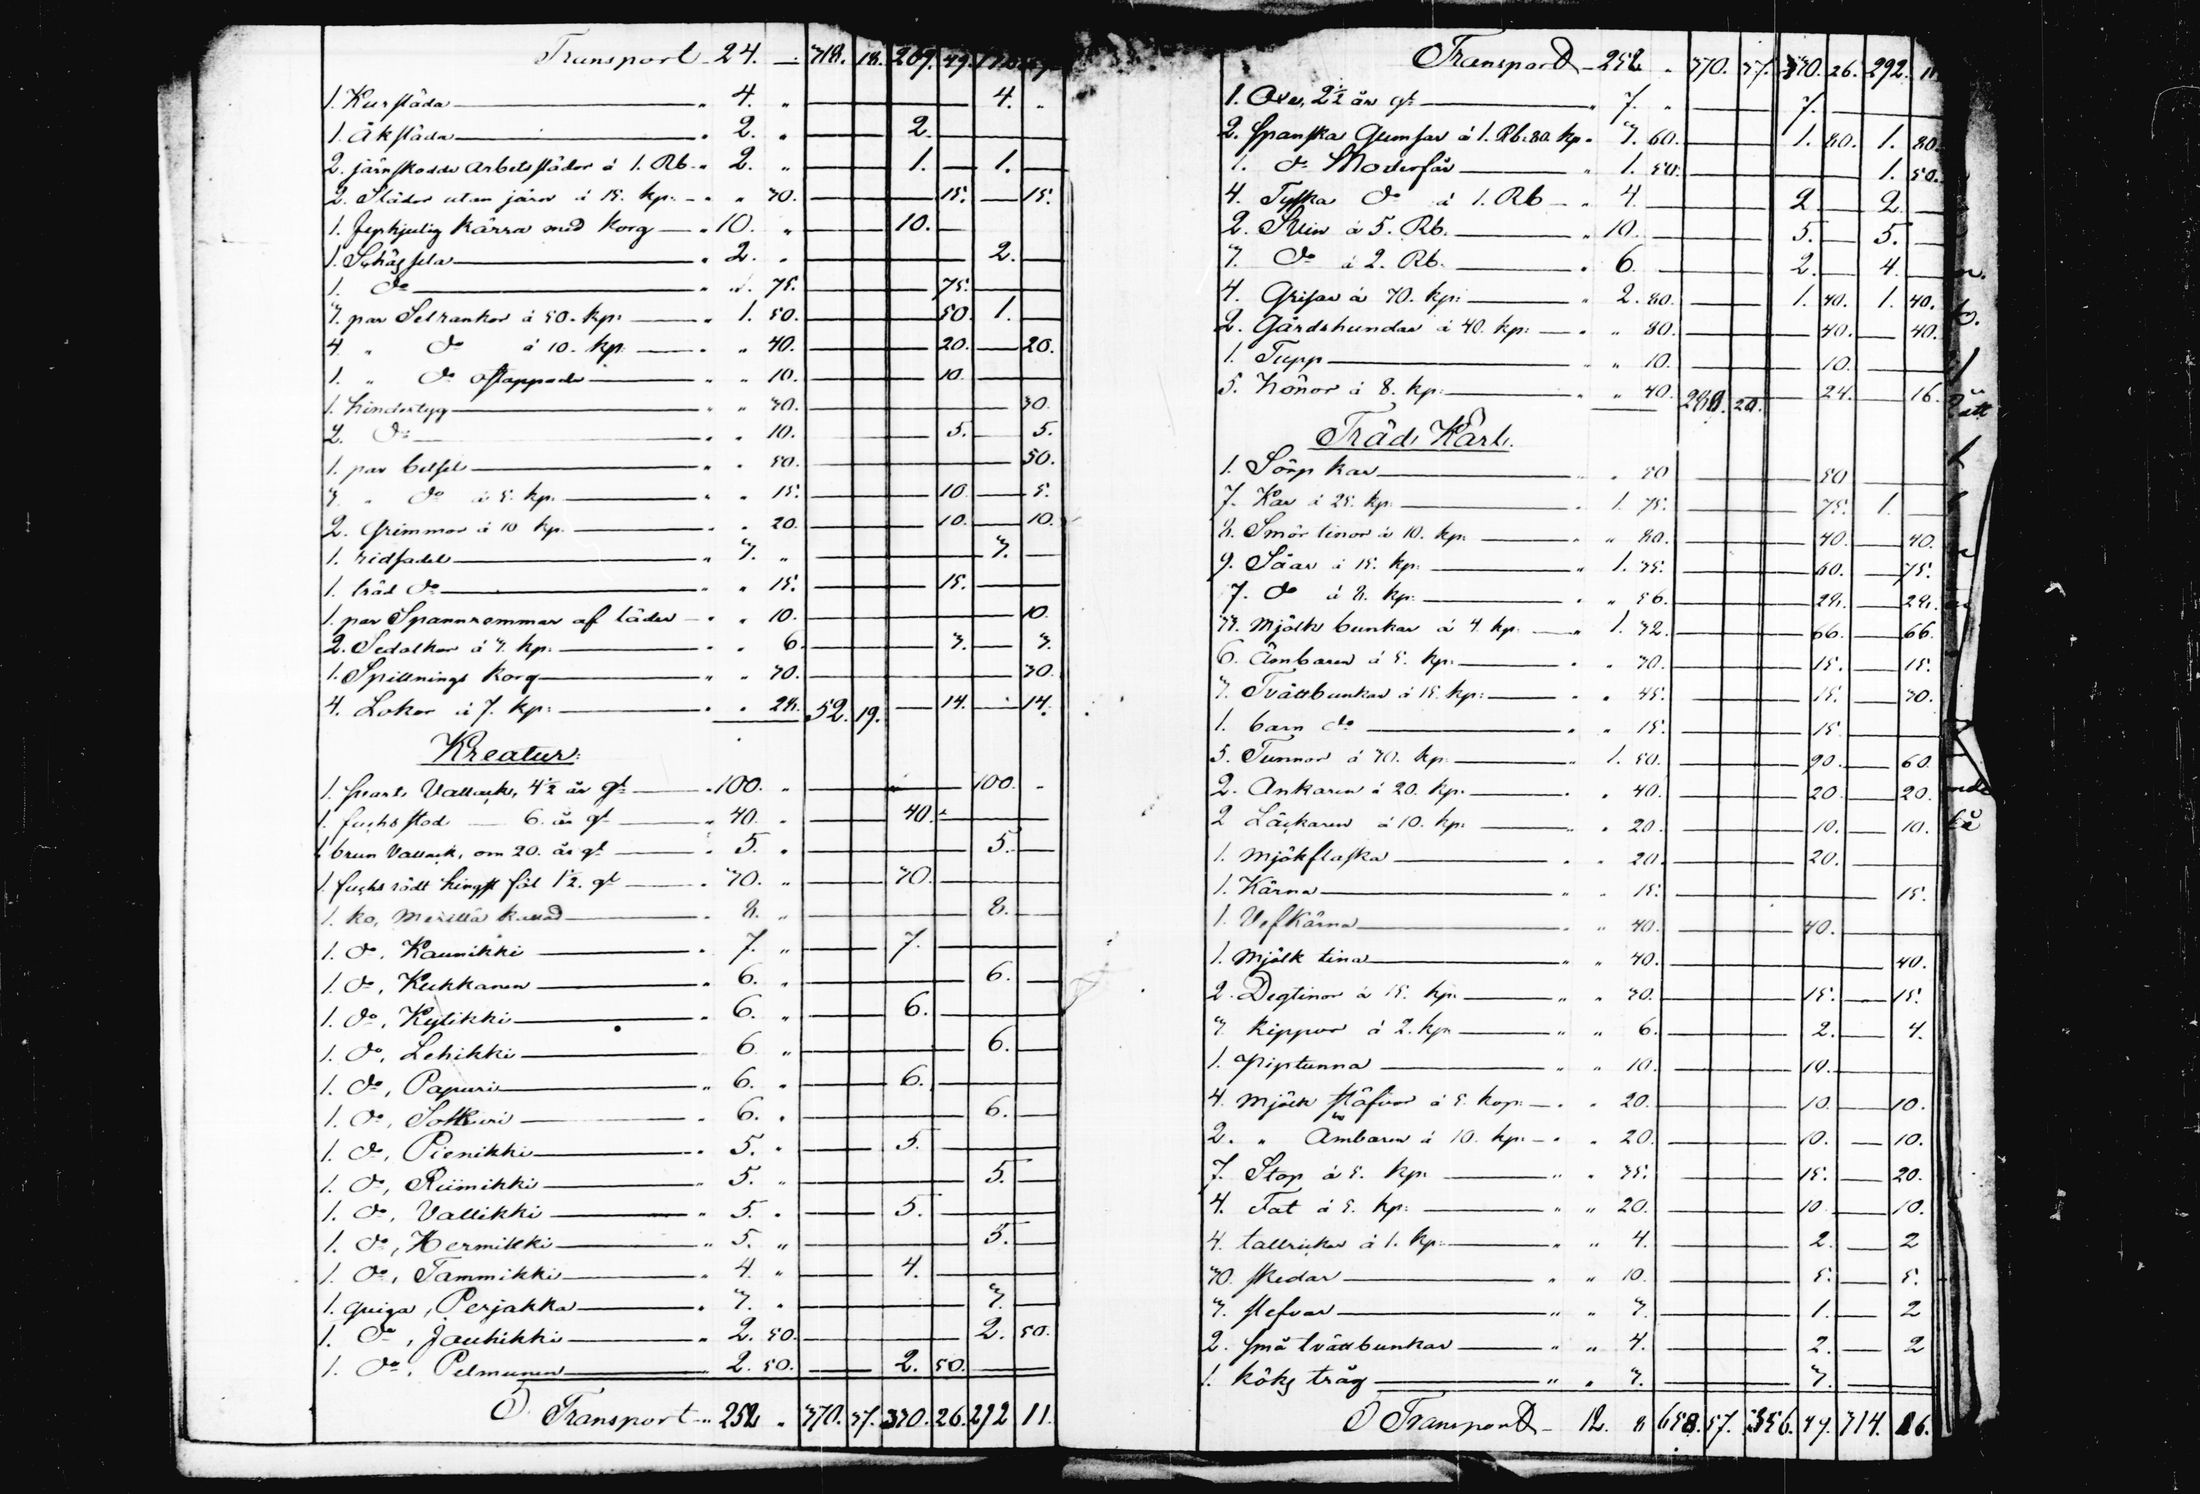 Transport 24. — 318. 18. 207. 49.
1. Kurslåda " 4. " 4. "
1. Åkslåda " 2. " 2.
2. järnskodde arbetsslädor á 1. Rb. " 2. " 1. 1.
2. Slädor utan järn á 15. kp: " " 30. 15. 15.
1. fyrhjulig kärra med korg " 10. " 10.
1. Schäs sela " 2. " 2.
1. do " " 75. 75.
3. par Selrankor á 50. kp: " 1. 50. 50. 1.
4. " do á 10. kp: " " 40. 20. 20.
1. " do " " 10. 10.
1. hindertyg " " 30. 30.
2. do " " 10. 5. 5.
1. par betsel " " 50. 50.
3. " do á 5. kp: " " 15. 10. 5.
2. Grimmor á 10 kp. " " 20. 10. 10.
1. ridsadel " 3. " 3.
1. träd do " " 15. 15.
1. par Spannremmar af läder " " 10. 10.
2. Sedolkor á 3. kp: " " 6. 3. 3.
1. Spillnings korg " " 30. 30.
4. Lokor á 7. kp: " " 28. 52. 19. 14. 14.
Kreatur:
1. svart Vallack, 4½ år gl " 100. " 100. "
1. fuchs stod 6. år gl " 40. " 40.
1. brun Vallack, om 20. år gl " 5. " 5.
1. fuchs rödt hingst föl 1½. gl " 30. " 30.
1. ko, Merillä kallad " 8. " 8.
1. do, Kaunikki " 7. " 7.
1. do, Kukkanen " 6. " 6.
1. do, Kylikki " 6. " 6.
1. do, Lehikki 6 " 6.
1. do, Papuri " 6. " 6.
1. do, Sotkuri " 6. " 6.
1. do, Pienikki " 5. " 5.
1. do, Riimikki " 5. " 5.
1. do, Vallikki " 5. " 5.
1. do, Hermikki " 5. " 5.
1. do, Tammikki " 4. " 4.
1. qviga, Perjakka " 3. " 3.
1. do, Jouhikki " 2. 50. 2. 50.
1. do, Pelmunen " 2. 50. 2. 50.
Transport " 252 " 370. 37. 370. 26. 292 11.
Transport 252 " 370. 37. 370. 26. 292. 11
1. Oxe, 2½ år gl " 7. " 7.
2. Spanska Gumsar á 1. Rb. 80. kp " 3. 60. 1. 80. 1. 80.
1. do Moderfår " 1. 50. 1. 50.
4. Tyska do á 1. Rb " 4. 2 2.
2. Svin á 5. Rb. " 10. 5. 5.
3. do á 2. Rb. " 6. 2. 4.
4. Grisar á 70. kp: " 2. 80. 1. 40. 1. 40.
2. Gårdshundar á 40. kp: " " 80. 40. 40.
1. Tupp " " 10. 10.
5. Hönor á 8. kp: " " 40. 288. 20. 24. 16.
Träd Kärl.
1. Sörp kar " " 50 50
7. Kar á 25. kp: " 1. 75. 75. 1.
8. Smör tinor á 10. kp: " " 80. 40. 40.
9. Såar á 15. kp: " 1. 35. 60. 75.
7. do á 8. kp: " " 56. 28. 28.
33. Mjölk bunkar á 4. kp: " 1. 32. 66. 66.
6. Ämbaren á 5. kp: " " 30. 15. 15.
3. Tvättbunkar á 15. kp: " " 45. 15. 30.
1. barn do " " 15. 15.
5. Tunnor á 30. kp. " 1. 50. 90. 60.
2. Ankaren á 20. kp: " " 40. 20. 20.
2 Läckaren á 10. kp: " " 20. 10. 10.
1. Mjölkflaska " " 20. 20.
1. Kärna " " 15. 15.
1. Vefkärna " " 40. 40.
1. Mjölk tina " " 40. 40.
2. Degtinor á 15. kp: " " 30. 15. 15.
3. Kippor á 2. kp " " 6. 2. 4.
1. Piptunna " " 10. 10.
4. Mjölk stäfvor á 5. kop: " " 20. 10. 10.
2. " Ämbaren á 10. kp: " " 20. 10. 10.
7. Stop á 5. kp: " " 35. 15. 20.
4. Fat á 5. kp: " " 20. 10. 10.
4. tallrickor á 1. kp: " " 4. 2. 2
30. skedar " " 10. 5. 5.
3. slefvar " " 3. 1. 2
2. små tvättbunkar " " 4. 2. 2
1. köks tråg " " 3. 3.
Transport 12. 8 658. 57. 356. 43. 314. 26.